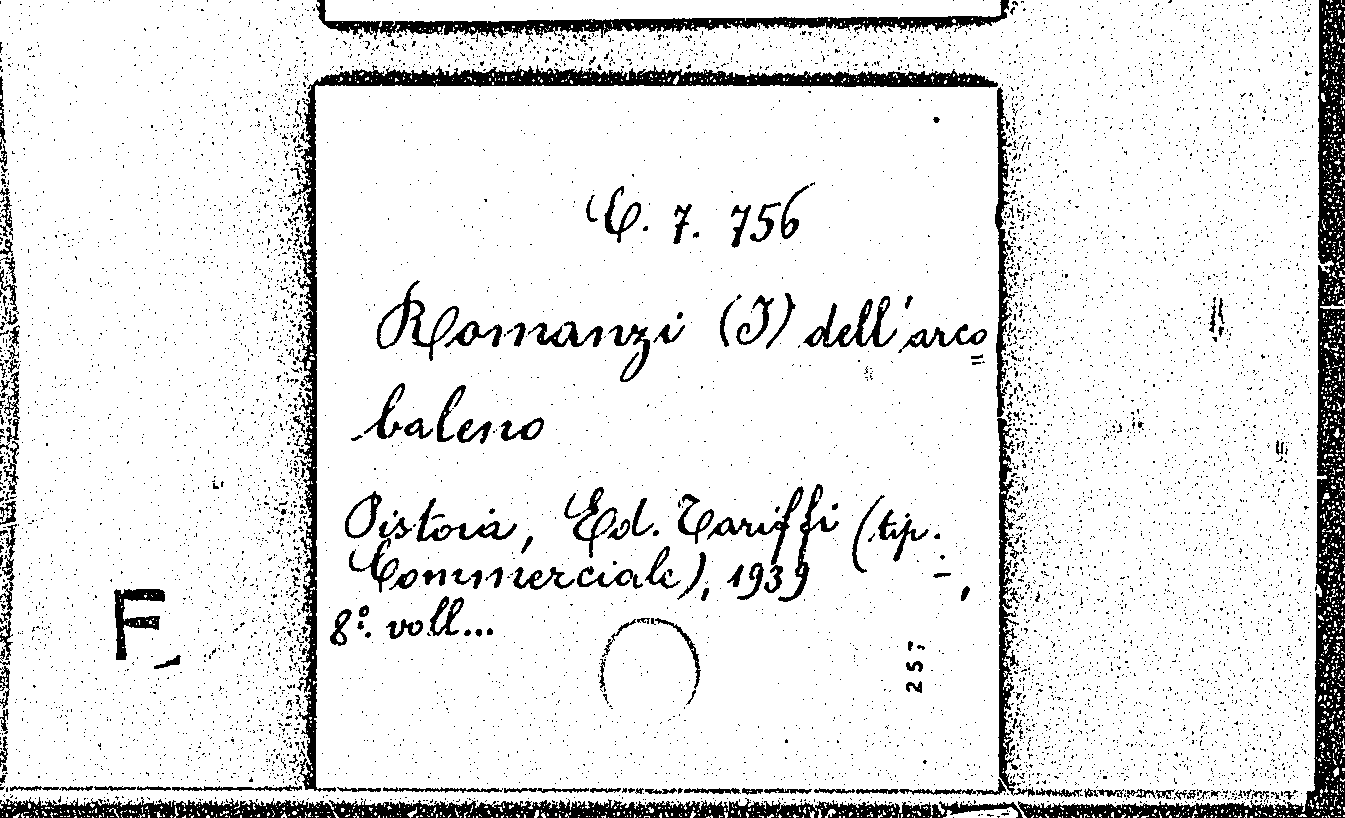 C. 7. 756
Romanzi (I) dell'arco=
baleno
Pistoia, Ed. Tariffi (tip.
Commerciale), 1939 - ,
8º. voll...
257
F